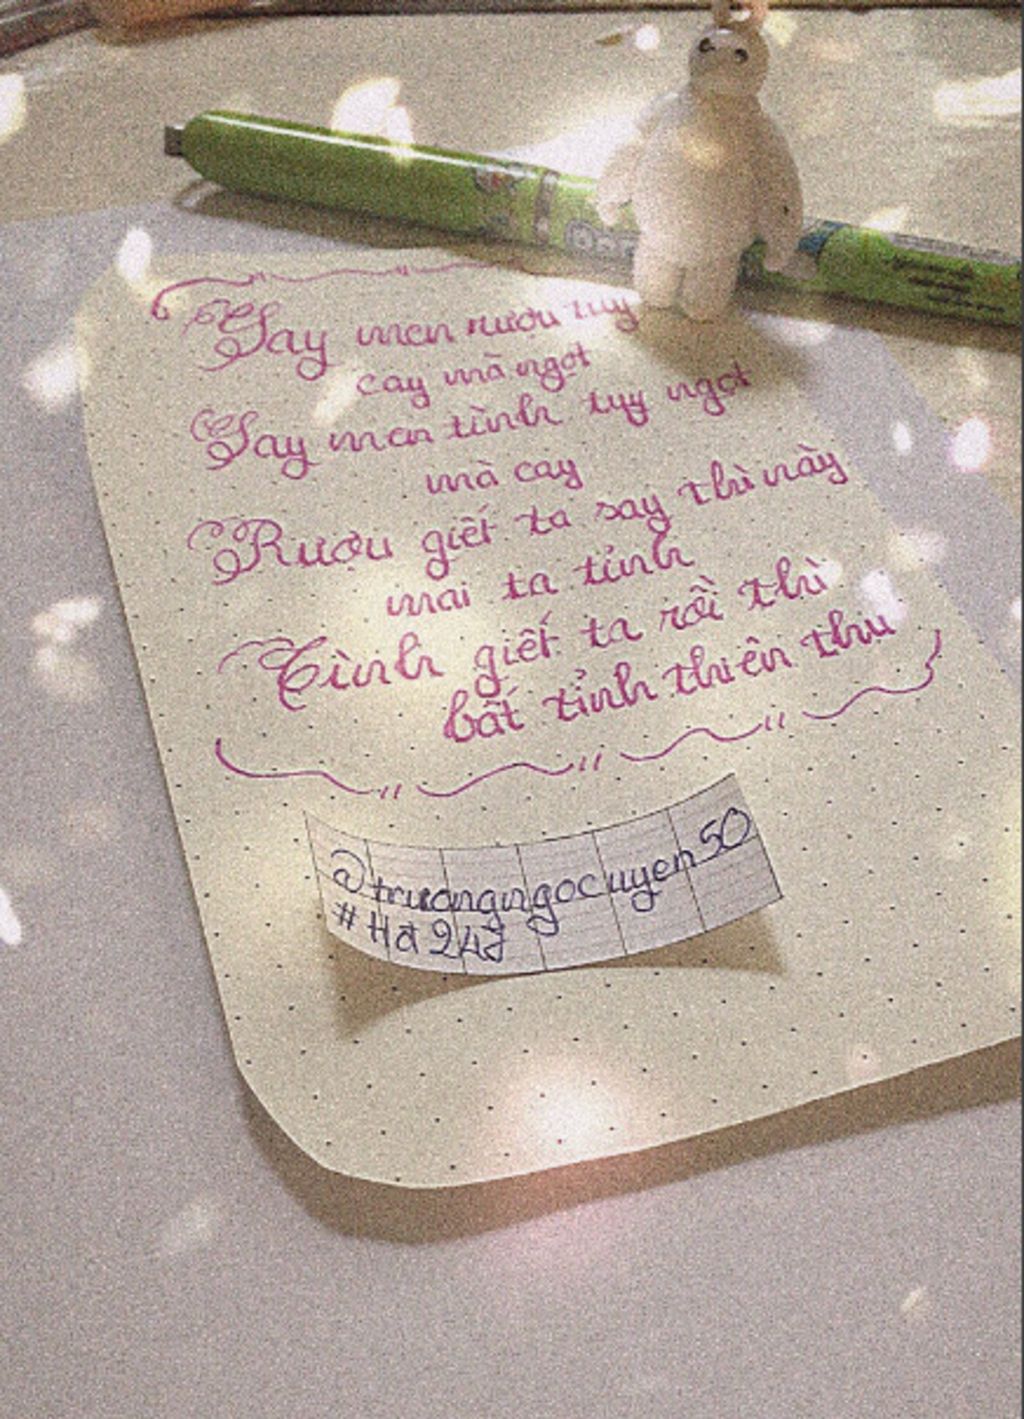 Say men rượu tuy
cay mà ngọt
Say men tình tuy ngọt
mà cay
Rượu giết ta say thì này
mai ta tỉnh
Tình giết ta rồi thì
bất tỉnh thiên thu
@truongngocuyen50